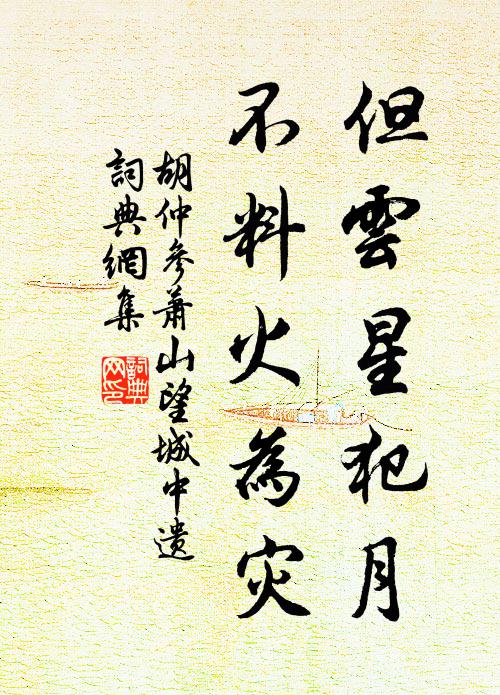 但雲星犯月
不料火為灾
胡仲參蕭山望城中遺
詞典網集
詞典
网印